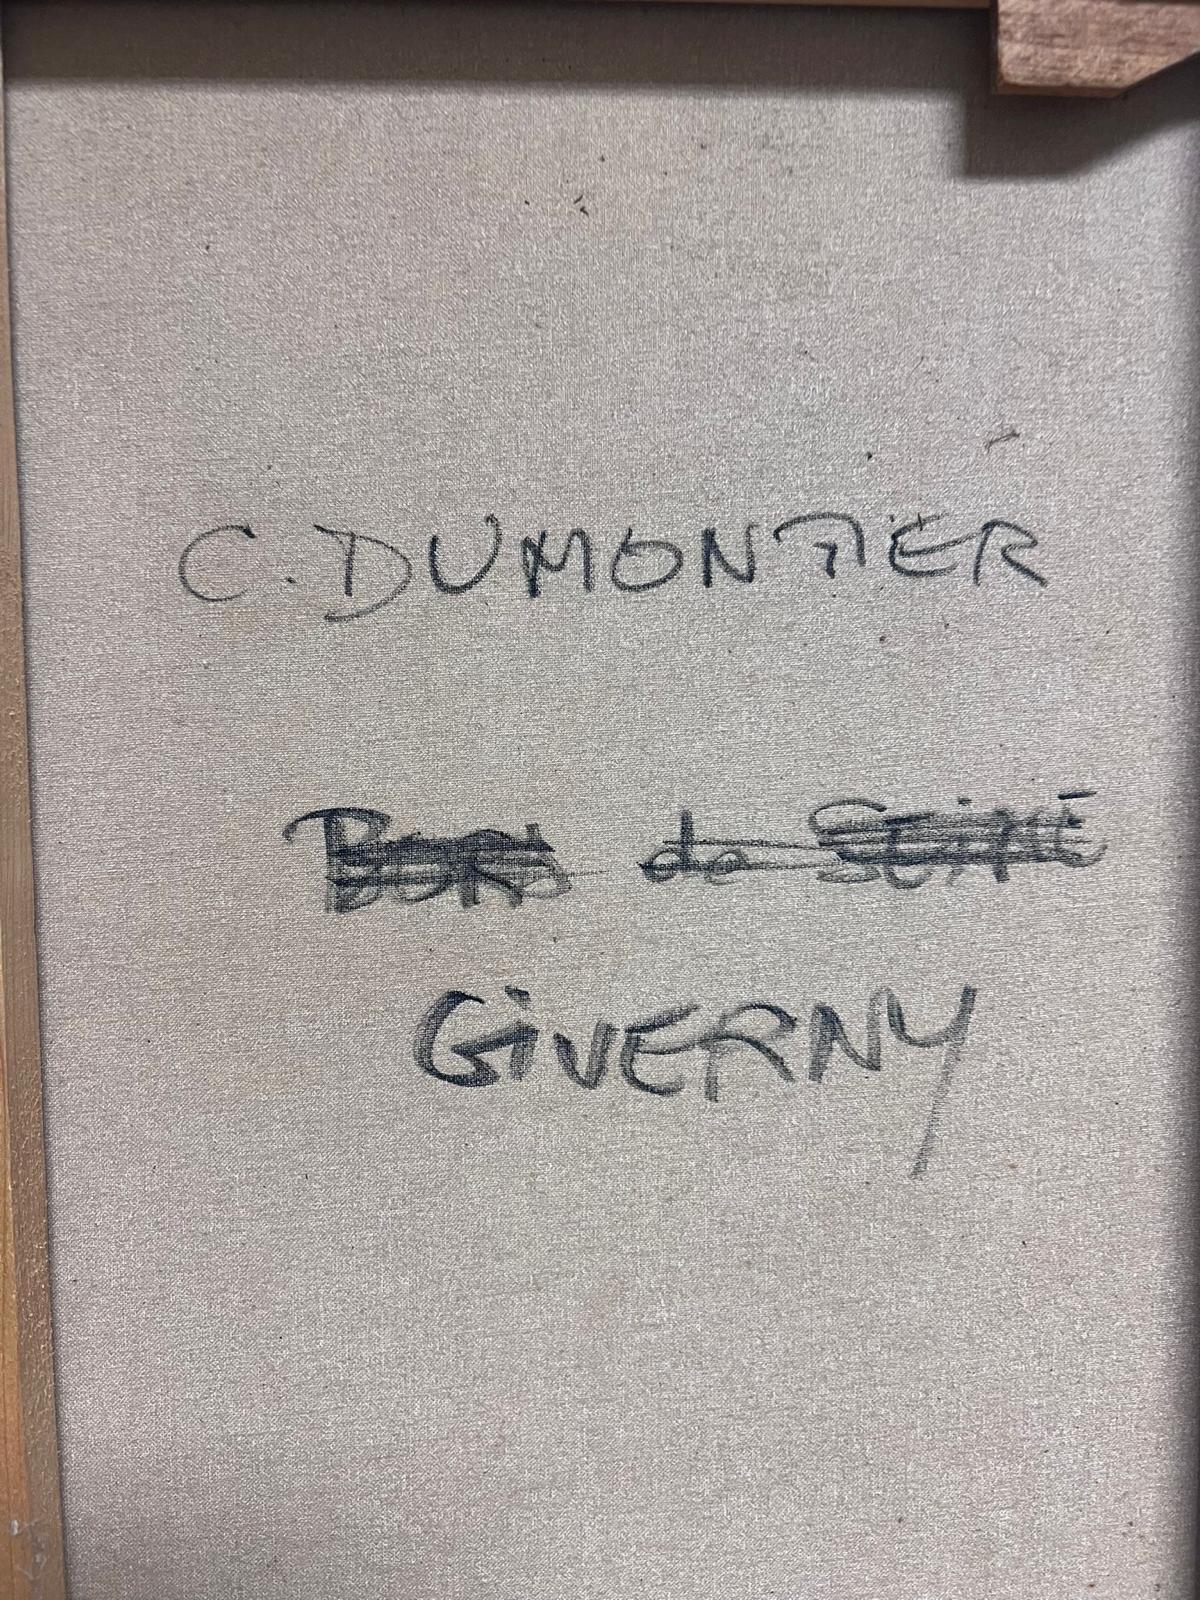 C. DUMONTIER
Bord de SEINE
GIVERNY